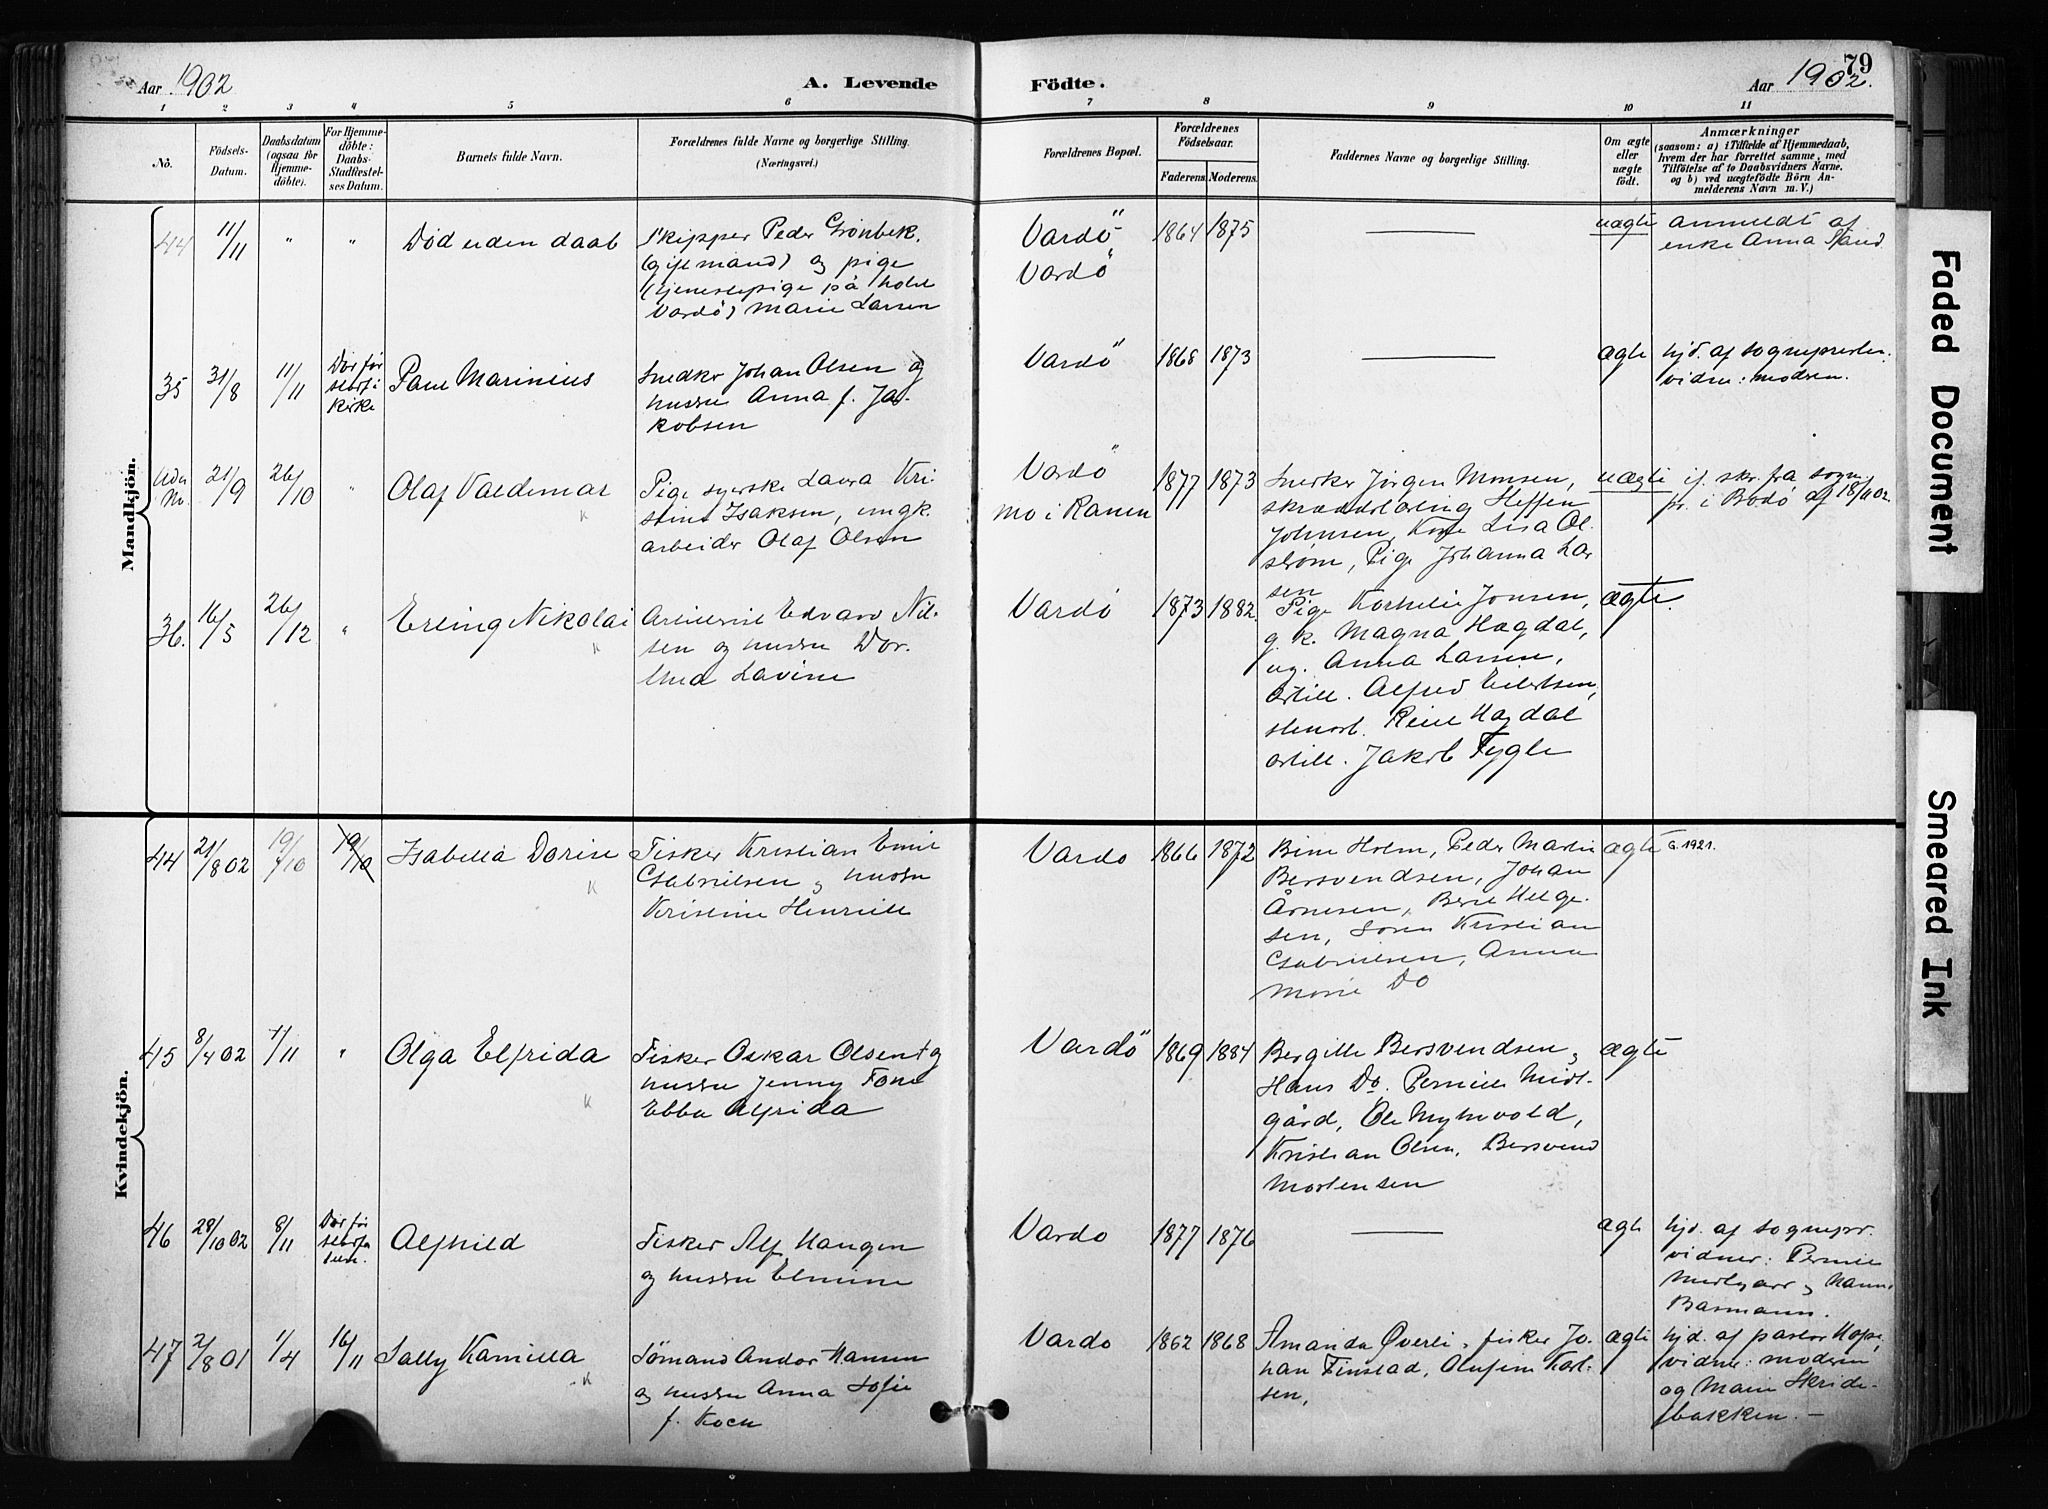 79
Aar 1902
A. Levende
Födte.
Aar 1902.
1 2 3 4 5 6 7 8 9 10 11
No.
Födsels-
Datum.
Daabsdatum
(ogsaa for
Hjemme-
döbte).
For Hjemme-
döbte:
Daabs-
Stadfæstel-
ses Datum.
Barnets fulde Navn.
Forældrenes fulde Navne og borgerlige Stilling.
(Næringsvei.)
Forældrenes Bopæl.
Forældrenes
Födselsaar.
Faderens.
Moderens.
Faddernes Navne og borgerlige Stilling.
Om ægte
eller
uægte
födt.
Anmærkninger
(saasom: a) i Tilfælde af Hjemmedaab,
hvem der har forrettet samme, med
Tilföielse af to Daabsvidners Navne,
og b) ved uægtefödte Börn An-
melderens Navn m. V.)
Mandkjön.
44 11/11 " " Død uden daab
Skipper Peder Grönbek.
(gift mand) og pige
(tjenestepige på hotel
Vardö) Marie Larsen
Vardö
Vardö
1864 1875 — uægte
anmeldt af
enke Anna
35 31/8 11/11
Dør før
stadf. i
kirke
Paul Marinius
Snedker Johan Olsen og
hustru Anna f. Ja-
kobsen
Vardö 1868 1873 — ægte
hjd. af sognepresten.
vidne: modren.
Uden
No. 21/9 26/10 " Olaf Valdemar
Pige syerske Laura Kri-
stine Isaksen, ungk.
arbeider Olaf Olsen
Vardö
Mo i Ranen
1877 1873
Snedker Jörgen Monsen,
skrædderlærling Steffen
Johnsen, Kone Lisa Ol-
ström, Pige Johanna Lar
sen
uægte
if. skr. fra sogne
pr. i Bodö af 18/11 02.
36. 16/5 26/12 " Erling Nikolai
Edvard Nil-
sen og hustru Dor-
thea Lavine
Vardö 1873 1882
Pige Kornelie Jonsen,
g k. Magna Hagdal,
ug. Anna Larsen,
artill. Alfred Eilertsen,
Hagdal
artill. Jakob Fygle
ægte.
Kvindekjön.
44 21/8 02 19/10 19/10 Isabella Dorise
Fisker Kristian Emil
Gabrielsen og hustru
Kristine Henriette
Vardö 1866 1872
Bine Holm, Peder Martin
Bersvendsen, Johan
Årnesen, Berit Helge-
sen, Soren Kristian
Gabrielsen, Anna
Marie Do
ægte G. 1921.
45 8/4 02 1/11 " Olga Elfrida
Fisker Oskar Olsen og
hustru Jenny Tone
Ebba Alfrida
Vardö 1869 1884
Bergitte Bersvendsen,
Hans Do. Pernille Midt-
gård, Ole Myhrvold,
Kristian Olsen, Bersvend
Mortensen
ægte
46 28/10 02 8/11
Dør før
Alfhild
Fisker Alf Haugen
og hustru Elmine
Vardö 1877 1876 — ægte
hjd. af sognepr.
vidner: Pernille
Midtgaard og Hanna
Basmann.
47 2/8 01 1/4 16/11 Sally Kamilla
Sømand Andor Hansen
og hustru Anna Sofie
f. Koch
Vardö 1862 1868
Amanda Øverli, fisker Jo-
han Finstad, Olufine Karl-
sen,
ægte
hjd. af pastor Hope,
vidner: moderen
og Marie Skride-
bakken. —
Faded Document
Smeared Ink